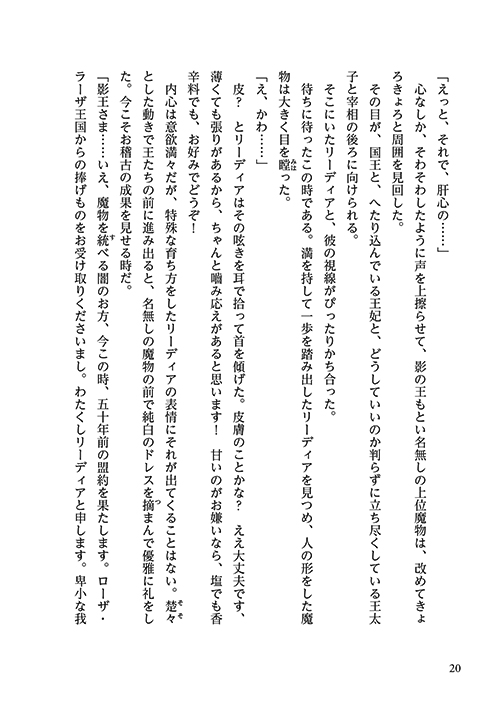 「えっと、それで、肝心の……」
　心なしか、そわそわしたように声を上擦らせて、影の王もとい名無しの上位魔物は、改めてきょ
ろきょろと周囲を見回した。
　その目が、国王と、へたり込んでいる王妃と、どうしていいのか判らずに立ち尽くしている王太
子と宰相の後ろに向けられる。
　そこにいたリーディアと、彼の視線がぴったりかち合った。
　待ちに待ったこの時である。満を持して一歩を踏み出したリーディアを見つめ、人の形をした魔
物は大きく目を瞠みはった。
「え、かわ……」
　皮？　とリーディアはその呟きを耳で拾って首を傾げた。皮膚のことかな？　ええ大丈夫です、
薄くても張りがあるから、ちゃんと嚙み応えがあると思います！　甘いのがお嫌いなら、塩でも香
辛料でも、お好みでどうぞ！
　内心は意欲満々だが、特殊な育ち方をしたリーディアの表情にそれが出てくることはない。楚々そそ
とした動きで王たちの前に進み出ると、名無しの魔物の前で純白のドレスを摘つまんで優雅に礼をし
た。今こそお稽古の成果を見せる時だ。
「影王さま……いえ、魔物を統すべる闇のお方、今この時、五十年前の盟約を果たします。ローザ・
ラーザ王国からの捧げものをお受け取りくださいまし。わたくしリーディアと申します。卑小な我
20